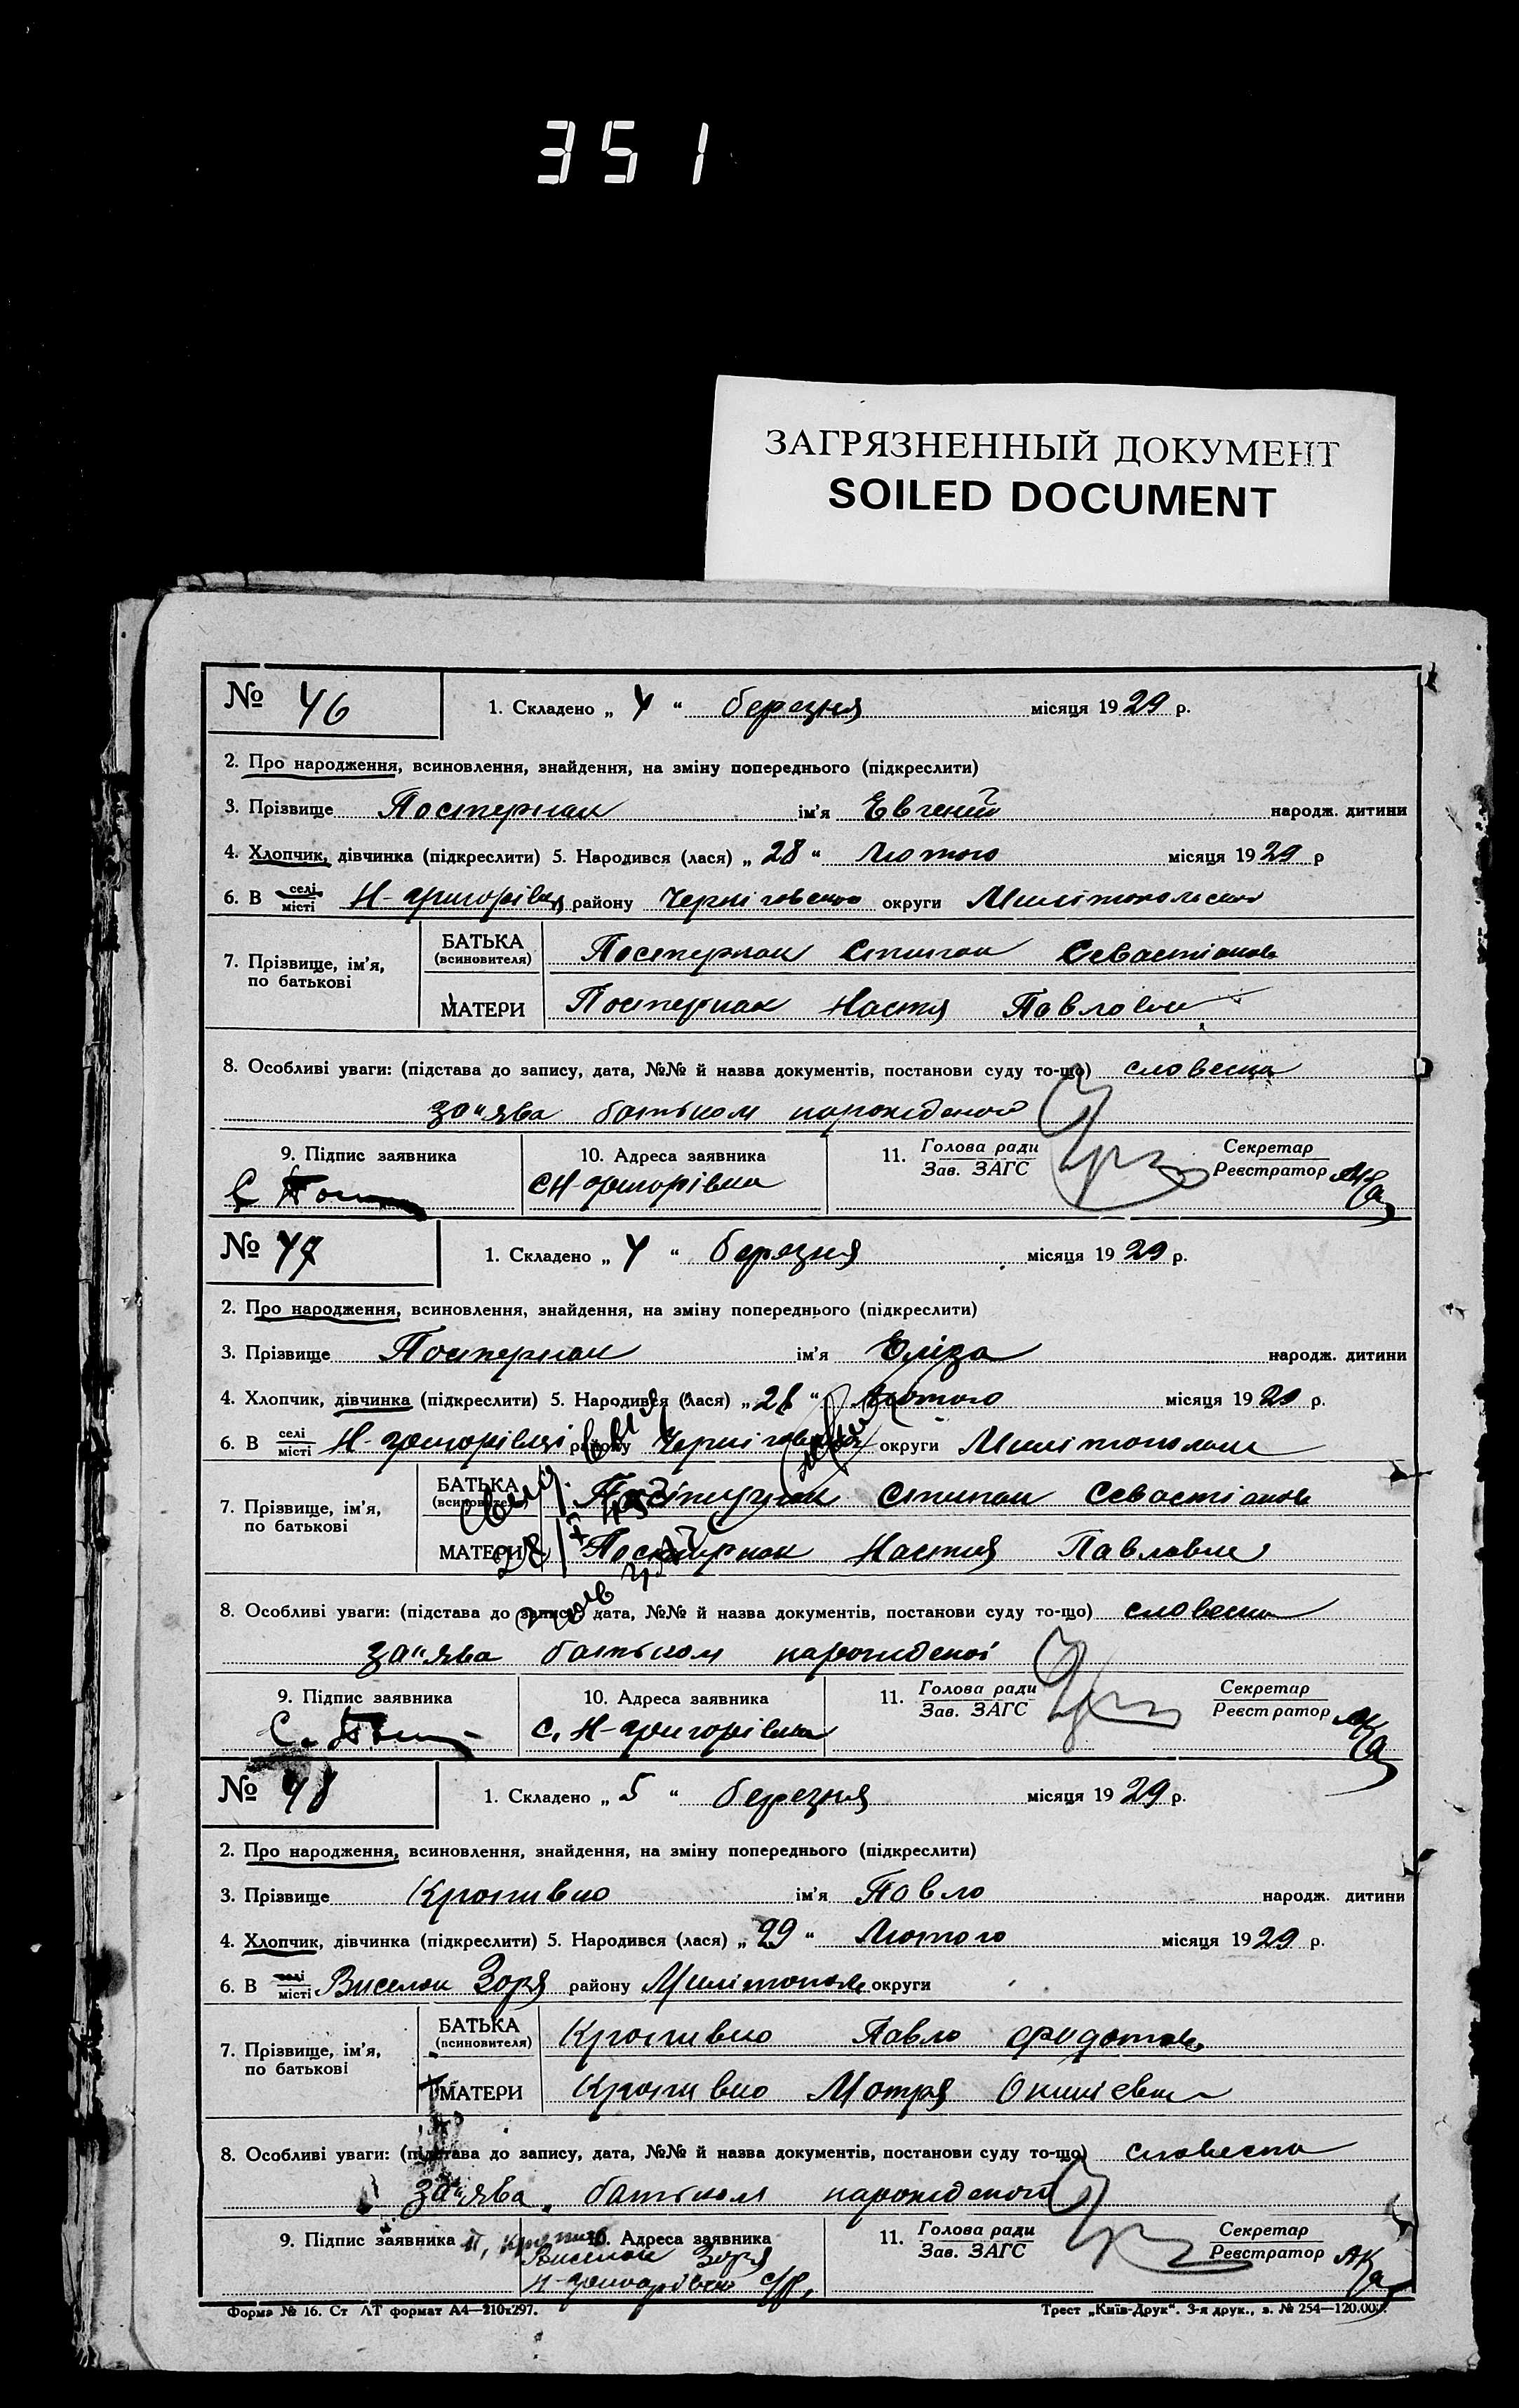 351
ЗАГРЯЗНЕННЫЙ ДОКУМЕНТ
SOILED DOCUMENT
№ 46 1. Складено „ 4 “ березня місяця 1929 р.
2. Про народження, всиновлення, знайдення, на зміну попереднього (підкреслити)
3. Прізвище Постернак ім'я Євгений народж. дитини
4. Хлопчик, дівчинка (підкреслити) 5. Народився (лася) „ 28 “ Лютого місяця 1929 р
6. В селі місті Н-григорівці району Чернiговского округи Милітопольскої
7. Прізвище, ім'я, по батькові БАТЬКА (всиновителя) Постернак Степан Севастіанов
МАТЕРИ Постернак Настя Павловна
8. Особливі уваги: (підстава до запису, дата, №№ й назва документів, постанови суду то-що) словесна
за"ява батьком нарожденої
9. Підпис заявника 10. Адреса заявника 11. Голова ради Зав. ЗАГС Секретар Реєстратор
С Пост с Н-григорівка
№ 47 1. Складено „ 4 “ березня місяця 1929 р.
2. Про народження, всиновлення, знайдення, на зміну попереднього (підкреслити)
3. Прізвище Постернак ім'я Єліза народж. дитини
4. Хлопчик, дівчинка (підкреслити) 5. Народився (лася) „ 28 “ Лютого місяця 1929 р.
6. В селі місті Н-григорівці району округи
7. Прізвище, ім'я, по батькові БАТЬКА (всиновителя) Постернак Степан Севастіанов
МАТЕРИ Постернак Настя Павловна
8. Особливі уваги: (підстава до запису, дата, №№ й назва документів, постанови суду то-що) словесна
за"ява батьком нарожденої
9. Підпис заявника 10. Адреса заявника 11. Голова ради Зав. ЗАГС Секретар Реєстратор
С. с. Н-григорівка
№ 48 1. Складено „ 5 “ березня місяця 1929 р.
2. Про народження, всиновлення, знайдення, на зміну попереднього (підкреслити)
3. Прізвище Кропивко ім'я Павло народж. дитини
4. Хлопчик, дівчинка (підкреслити) 5. Народився (лася) „ 29 “ Лютого місяця 1929 р.
6. В селі місті Виселок Зоря району Милітополь округи
7. Прізвище, ім'я, по батькові БАТЬКА (всиновителя) Кропивко Павло Федотов
МАТЕРИ Кропивко Мотря
8. Особливі уваги: (підстава до запису, дата, №№ й назва документів, постанови суду то-що) словесна
за"ява батьком нарожденої
9. Підпис заявника 10. Адреса заявника 11. Голова ради Зав. ЗАГС Секретар Реєстратор
Виселок Зоря
Н-григорівскої с/р.
Форма № 16. Ст ЛТ формат А4—210х297. Трест „Київ-Друк“. 3-я друк., з. № 254—120.000.